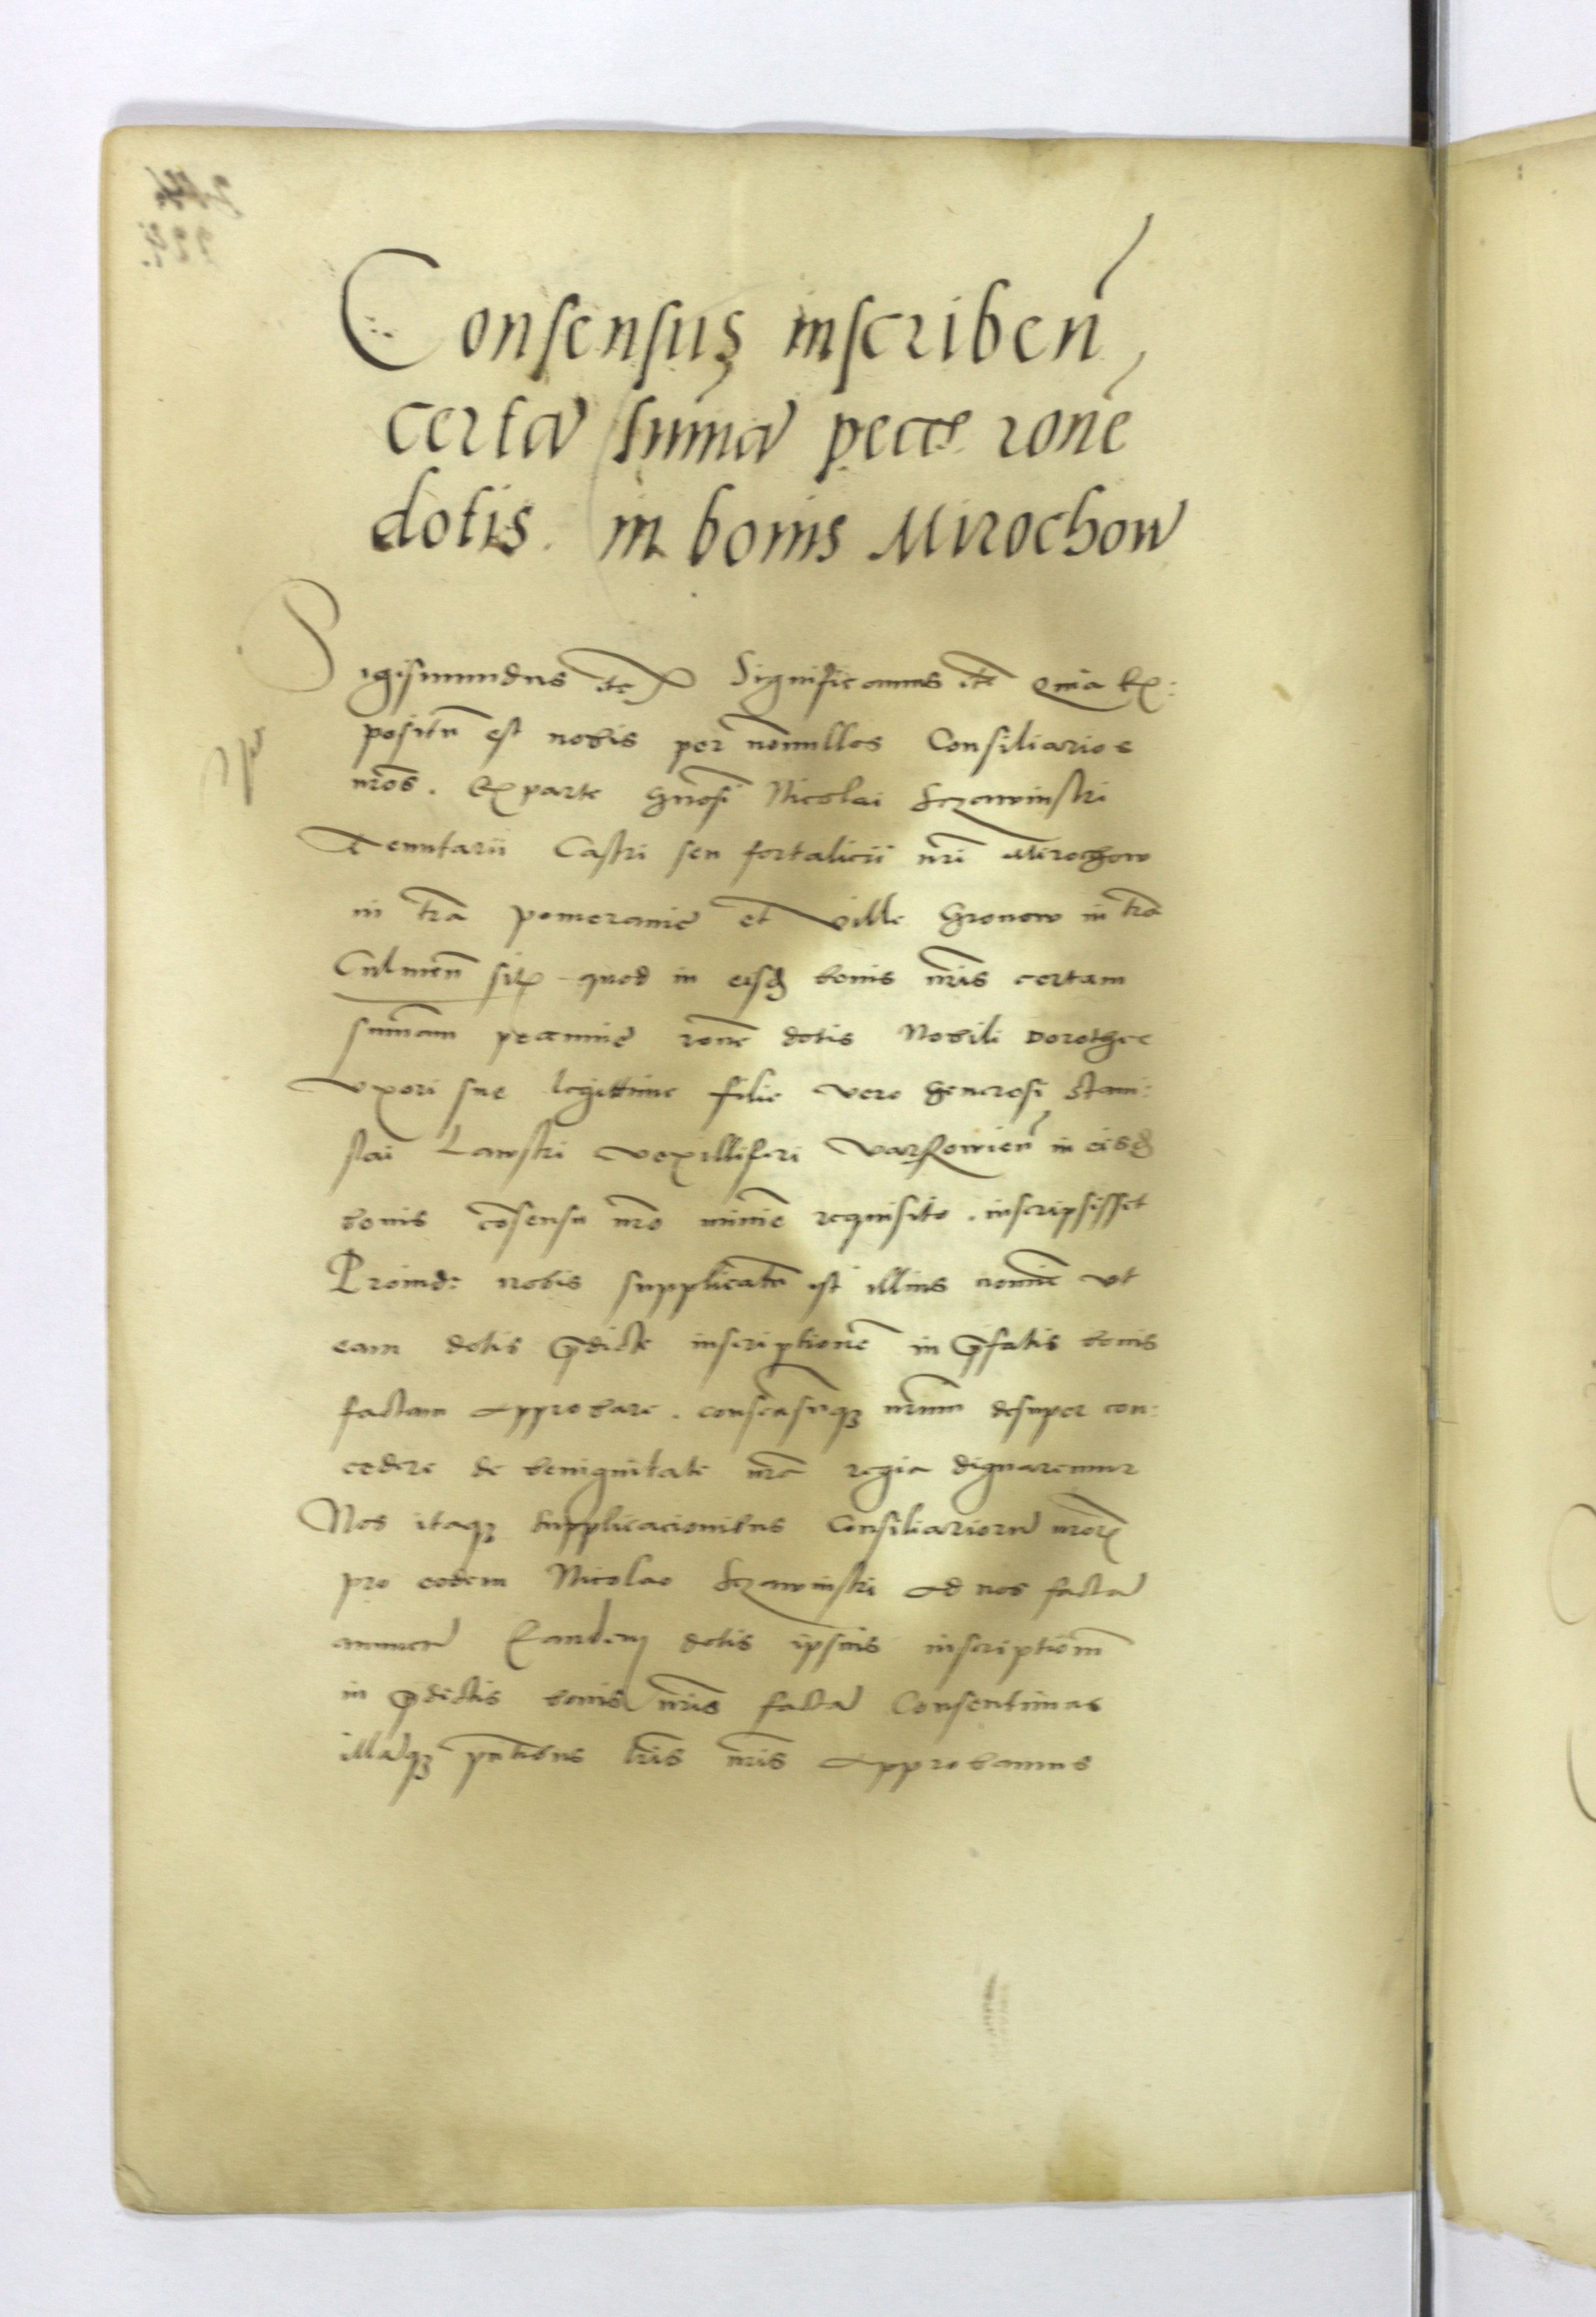 Consensus inscriben̄
certā summā pec̄e rōne
dotis in bonis Mirochow
Sigismundus etc Significamus etc Quia Ex:
positū est nobis per nōnnullos Consiliarios
nr̄os. Ex parte Gn̄osi Nicolai Sczawinski
Tenutarii Castri seu fortalicii nr̄i Mirochow
in tr̄a pomeranie et ville Gronow in tr̄a
Culmen̄ sit quod in eisd bonis nr̄is certam
summam pecunie rōne dotis Nobili Dorothee
vxori sue legittime filie vero Generosi Stani:
slai Lawski vexilliferi Varschowien̄ in eisd
bonis cōsensu nr̄o minime requisito. inscripsisset
Proinde nobis supplicatū est illius nomīe vt
eam dotis p̄dicte inscriptionē in p̄fatis bonis
factam approbare. consensūq nr̄um desuper con:
cedere de benignitate nr̄a regia dignaremur
Nos itaq supplicacionibus Consiliariorū nr̄or
pro eodem Nicolao Sczawinski ad nos factā
annuen̄ Eandem dotis ipsius inscriptionem̄
in p̄dictis bonis nr̄is factā Consentimus
illāq pn̄tibus lr̄is nr̄is approbamus